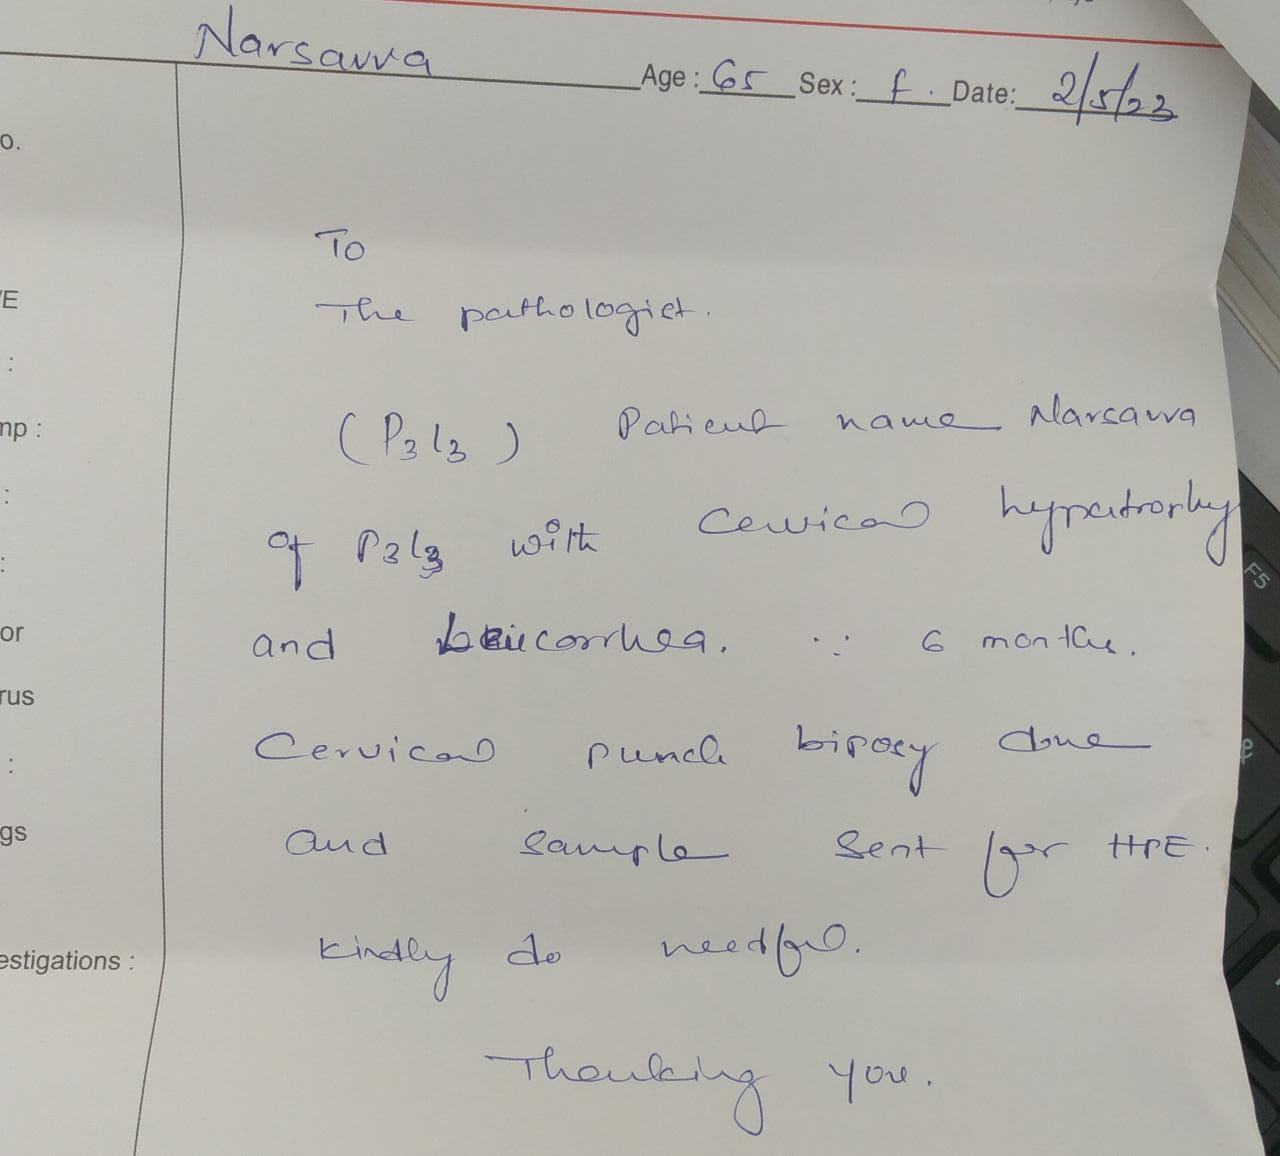 Narsavva
Age : 65 Sex : f. Date: 2/5/23
o.
To
/E
The pathologist.
:
mp :
(P3L3) Patient name Narsavva
:
of P3L3 with cervical hypertrophy
:
or
and leucorrhea. ∵ 6 months.
rus
:
Cervical punch biposy done
gs
and sample sent for HPE.
estigations :
kindly do needful.
Thanking you.
F5